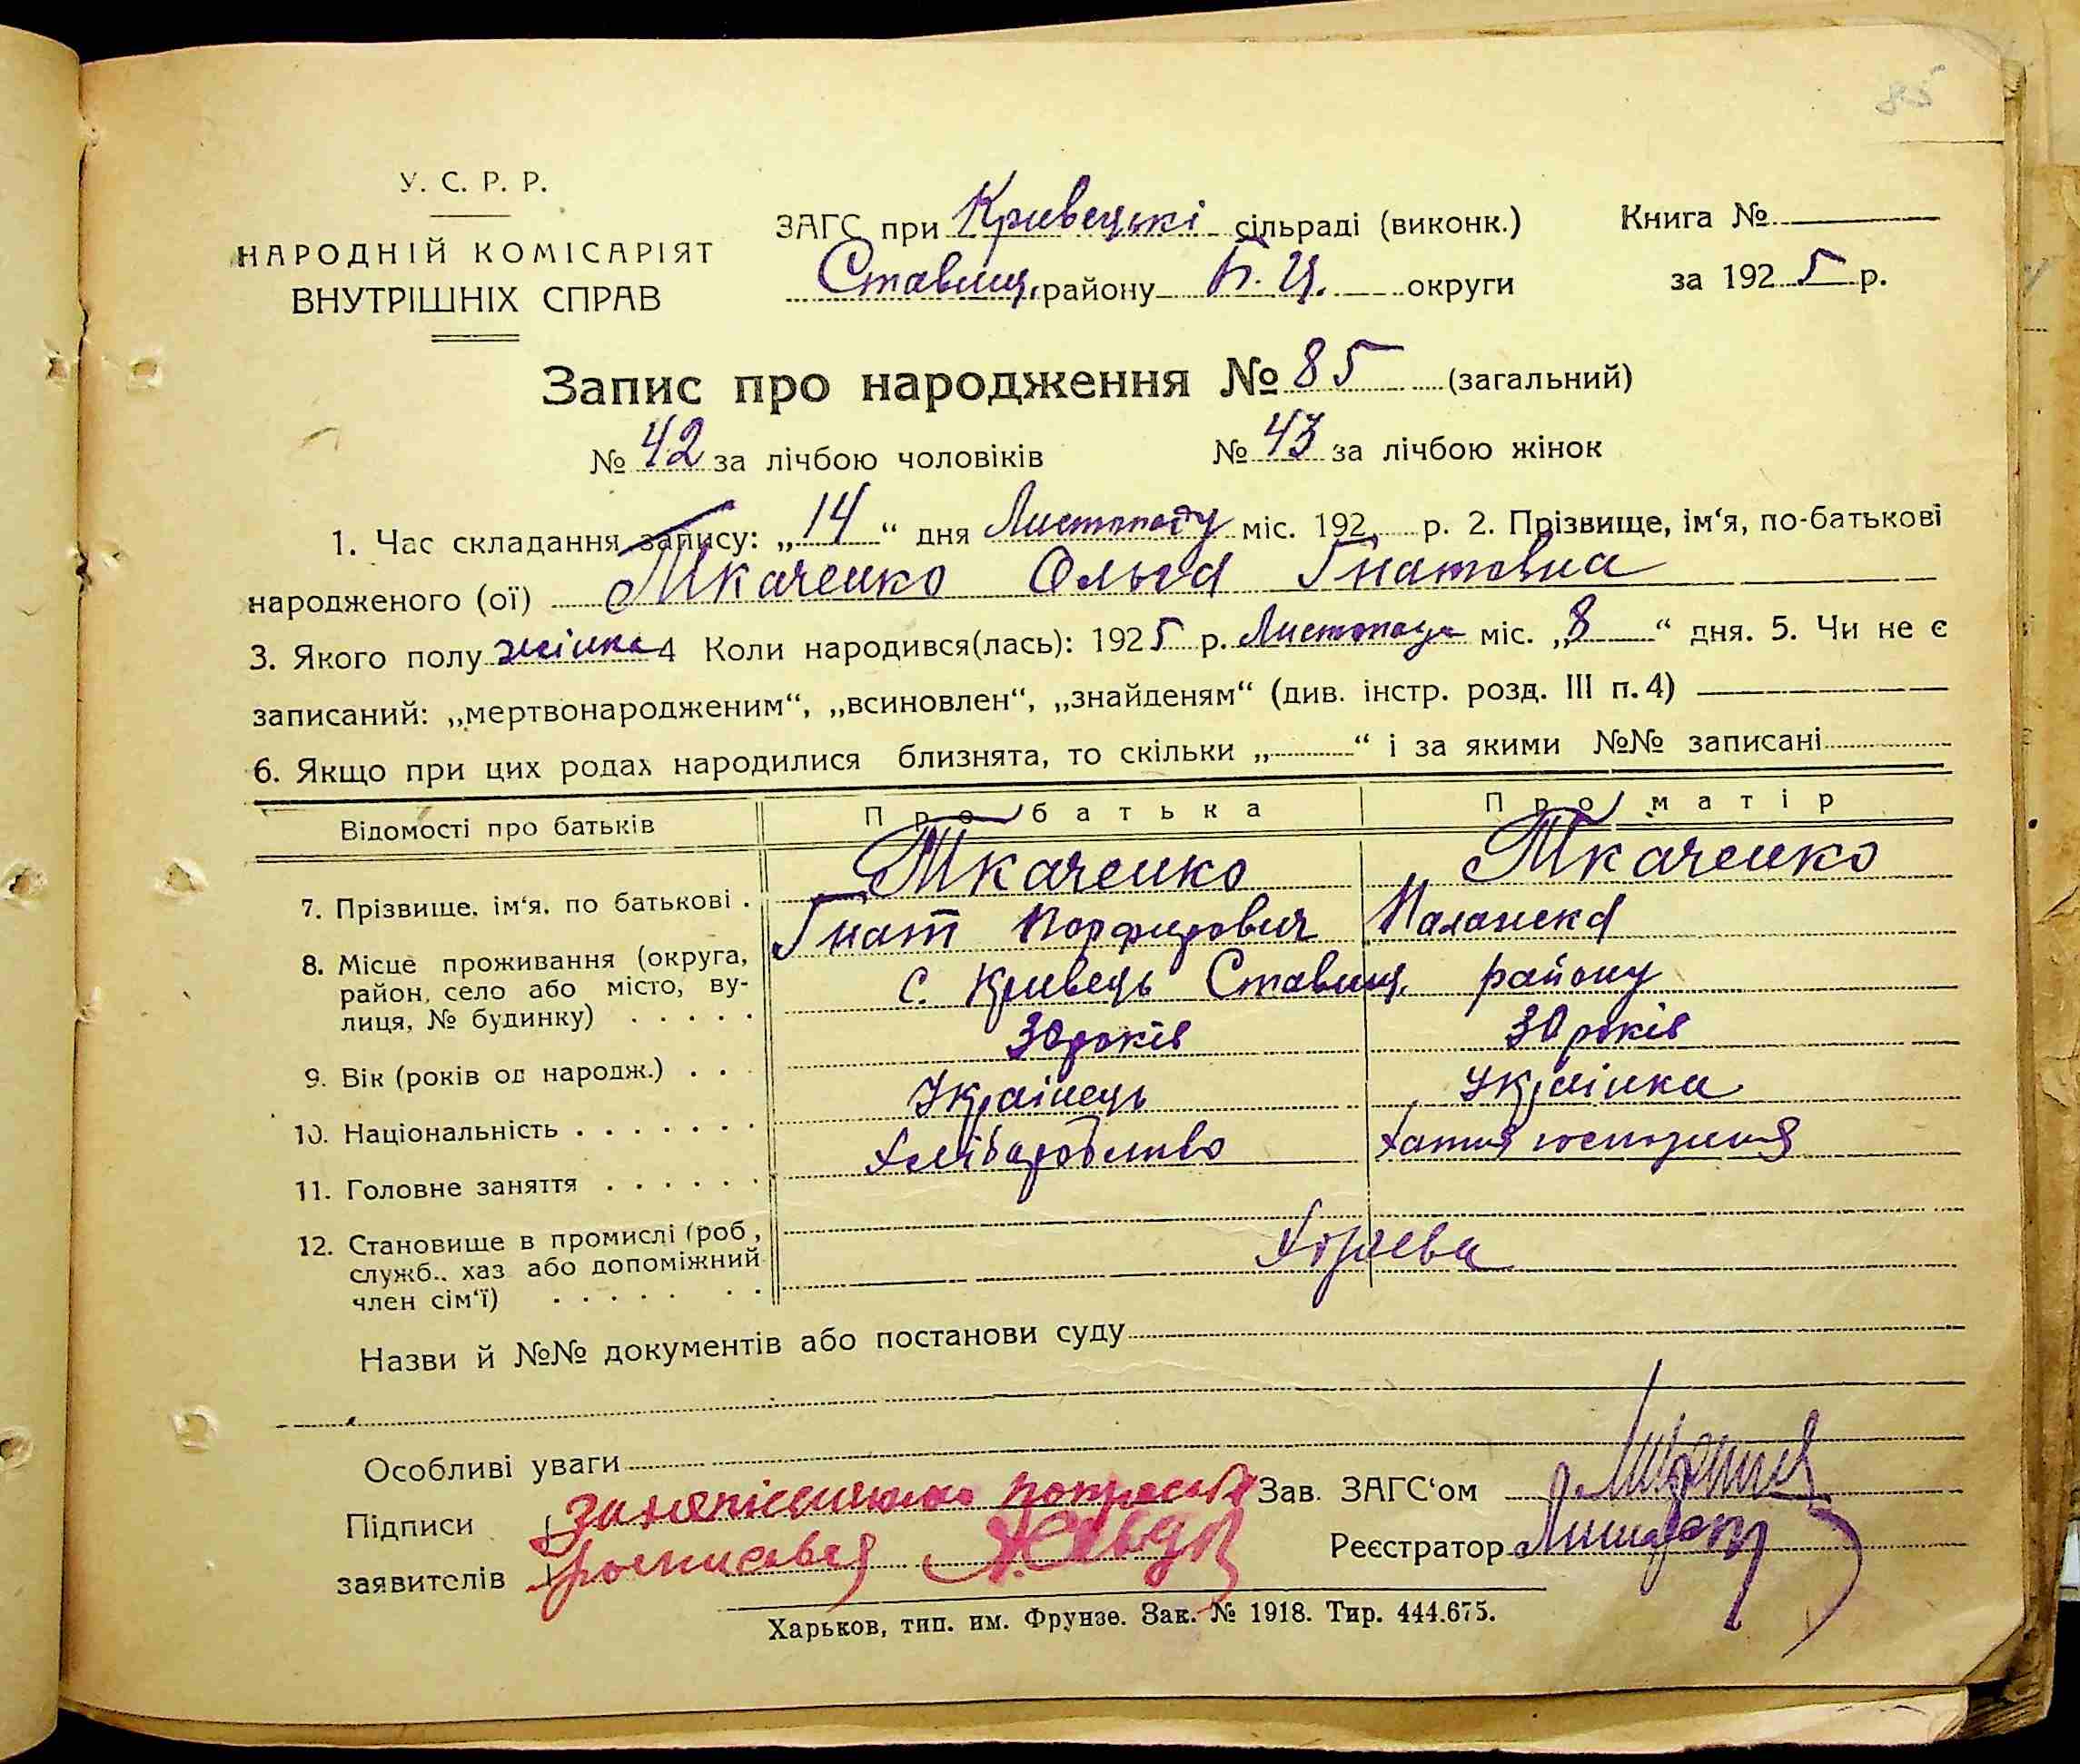 85
У. С. Р. Р.
НАРОДНІЙ КОМІСАРІЯТ
ВНУТРІШНІХ СПРАВ
ЗАГС при Кривецькі сільраді (виконк.)
Ставищ. району Б. Ц. округи
Книга №
за 1925 р.
Запис про народження № 85 (загальний)
№ 42 за лічбою чоловіків № 43 за лічбою жінок
1. Час складання запису: „14“ дня Листопаду міс. 192 р. 2. Прізвище, ім‘я, по-батькові
народженого (ої) Ткаченко Ольга Гнатовна
3. Якого полу жінка 4 Коли народився(лась): 1925 р. Листопада міс. „8“ дня. 5. Чи не є
записаний: „мертвонародженим“, „всиновлен“, „знайденям“ (див. інстр. розд. III п. 4)
6. Якщо при цих родах народилися близнята, то скільки „ “ і за якими №№ записані
Відомості про батьків Про батька Про матір
7. Прізвище, ім‘я, по батькові . Ткаченко Ткаченко
Гнат Порфирович Палажка
8. Місце проживання (округа,
район, село або місто, ву-
лиця, № будинку) . . . . .
с. Кривець Ставищ. району
9. Вік (років од народж.) . . . 30 років 30 років
10. Національність . . . . . . . Українець Українка
11. Головне заняття . . . . . . Хліборобство хатня господиня
12. Становище в промислі (роб.,
служб., хаз або допоміжний
член сім‘ї) . . . . . . .
Назви й №№ документів або постанови суду
Особливі уваги
Підписи
заявителів
Зав. ЗАГС‘ом
Реєстратор
Харьков, тип. им. Фрунзе. Зак. № 1918. Тир. 444.675.